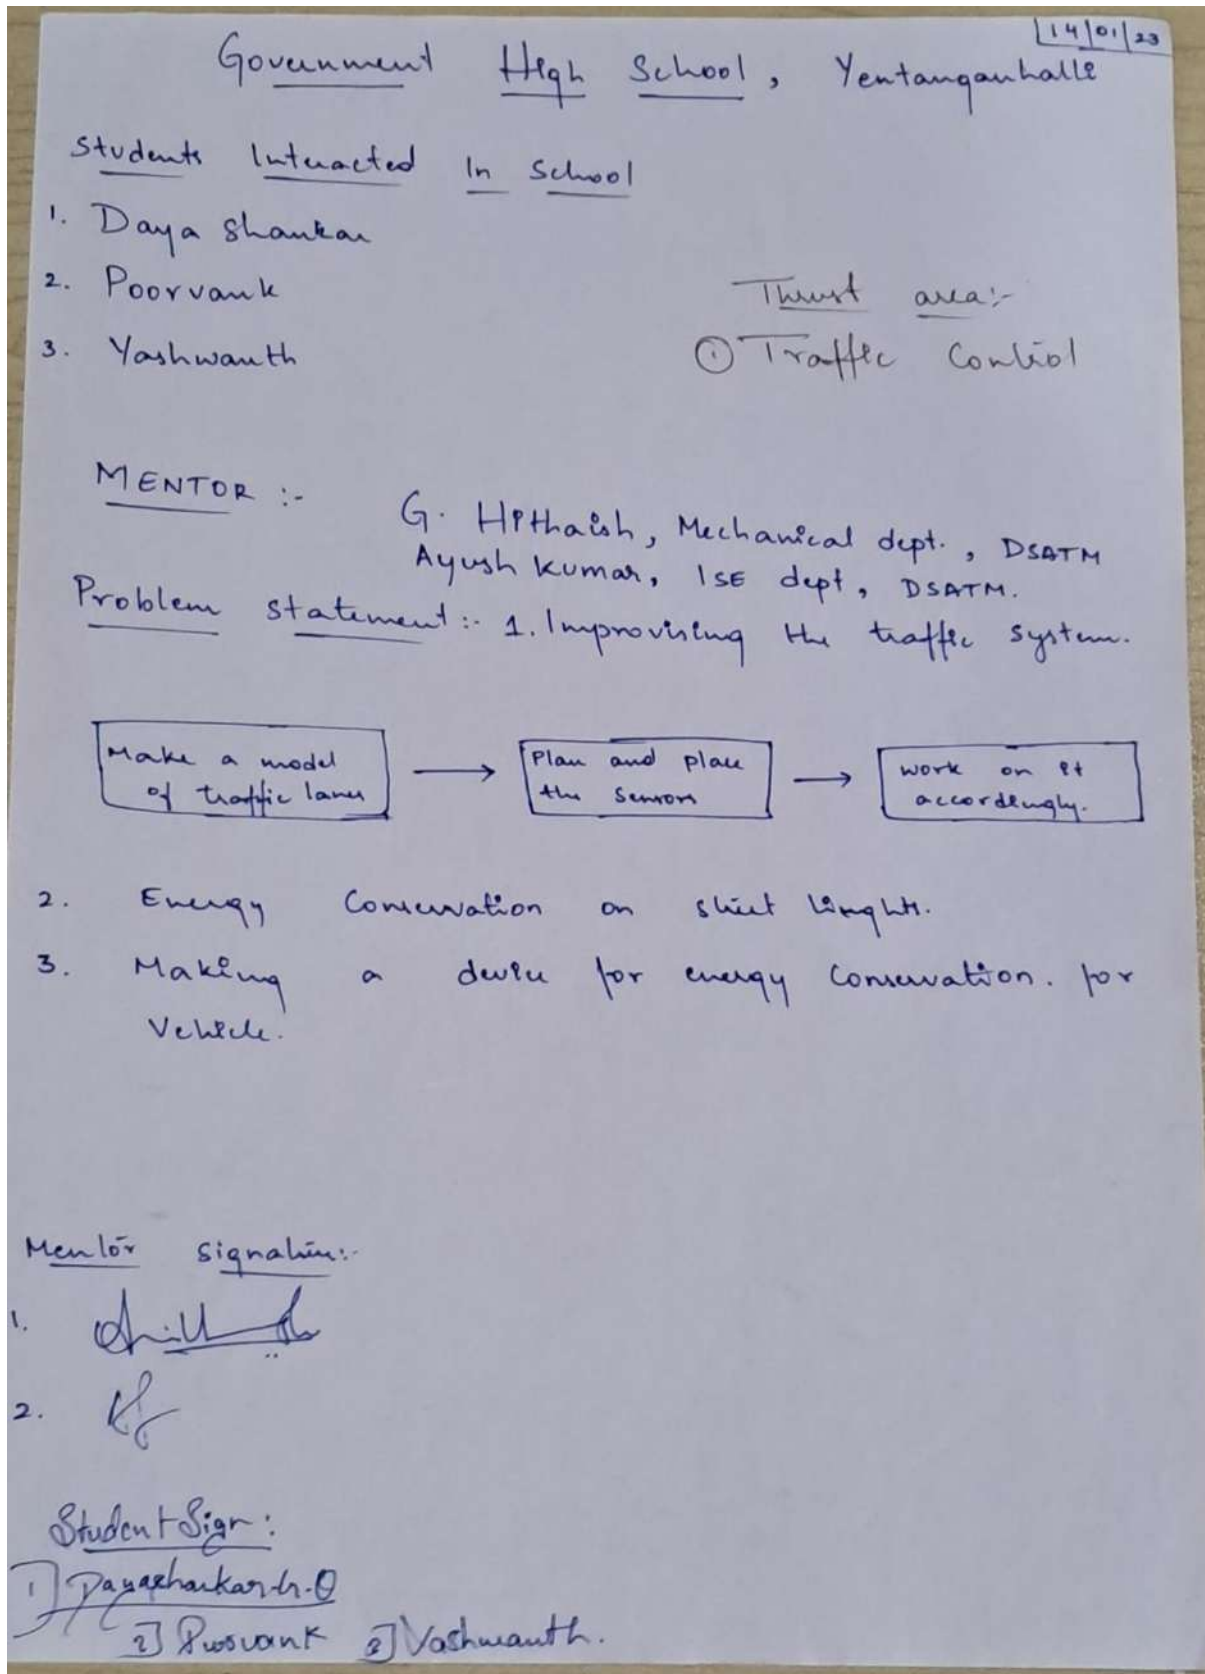 14/01/23
Government High School, Yentanganhalli
Students Interacted In School
1. Daya Shankar
2. Poorvank
3. Yashwanth
Thrust area:-
① Traffic Control
MENTOR :-
G. Hithaish, Mechanical dept., DSATM
Ayush Kumar, ISE dept, DSATM.
Problem statement:- 1. Improvising the traffic system.
Make a model
of traffic lanes
Plan and place
the sensors
work on it
accordingly.
2. Energy Conservation on street linghts.
3. Making a device for energy conservation. for
Vehicle.
Mentor signature:-
1.
2.
Student Sign:
1] Dayashankar
2] Purvank 3] Yashwanth.